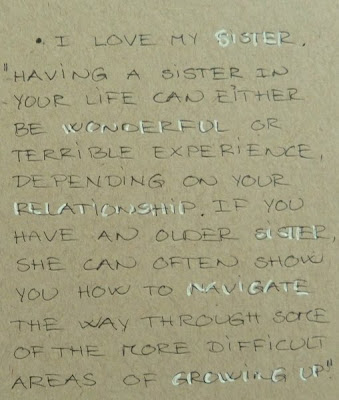 • I LOVE MY SISTER.
"HAVING A SISTER IN
YOUR LIFE CAN EITHER
BE WONDERFUL OR
TERRIBLE EXPERIENCE,
DEPENDING ON YOUR
RELATIONSHIP. IF YOU
HAVE AN OLDER SISTER,
SHE CAN OFTEN SHOW
YOU HOW TO NAVIGATE
THE WAY THROUGH SOME
OF THE MORE DIFFICULT
AREAS OF GROWING UP."